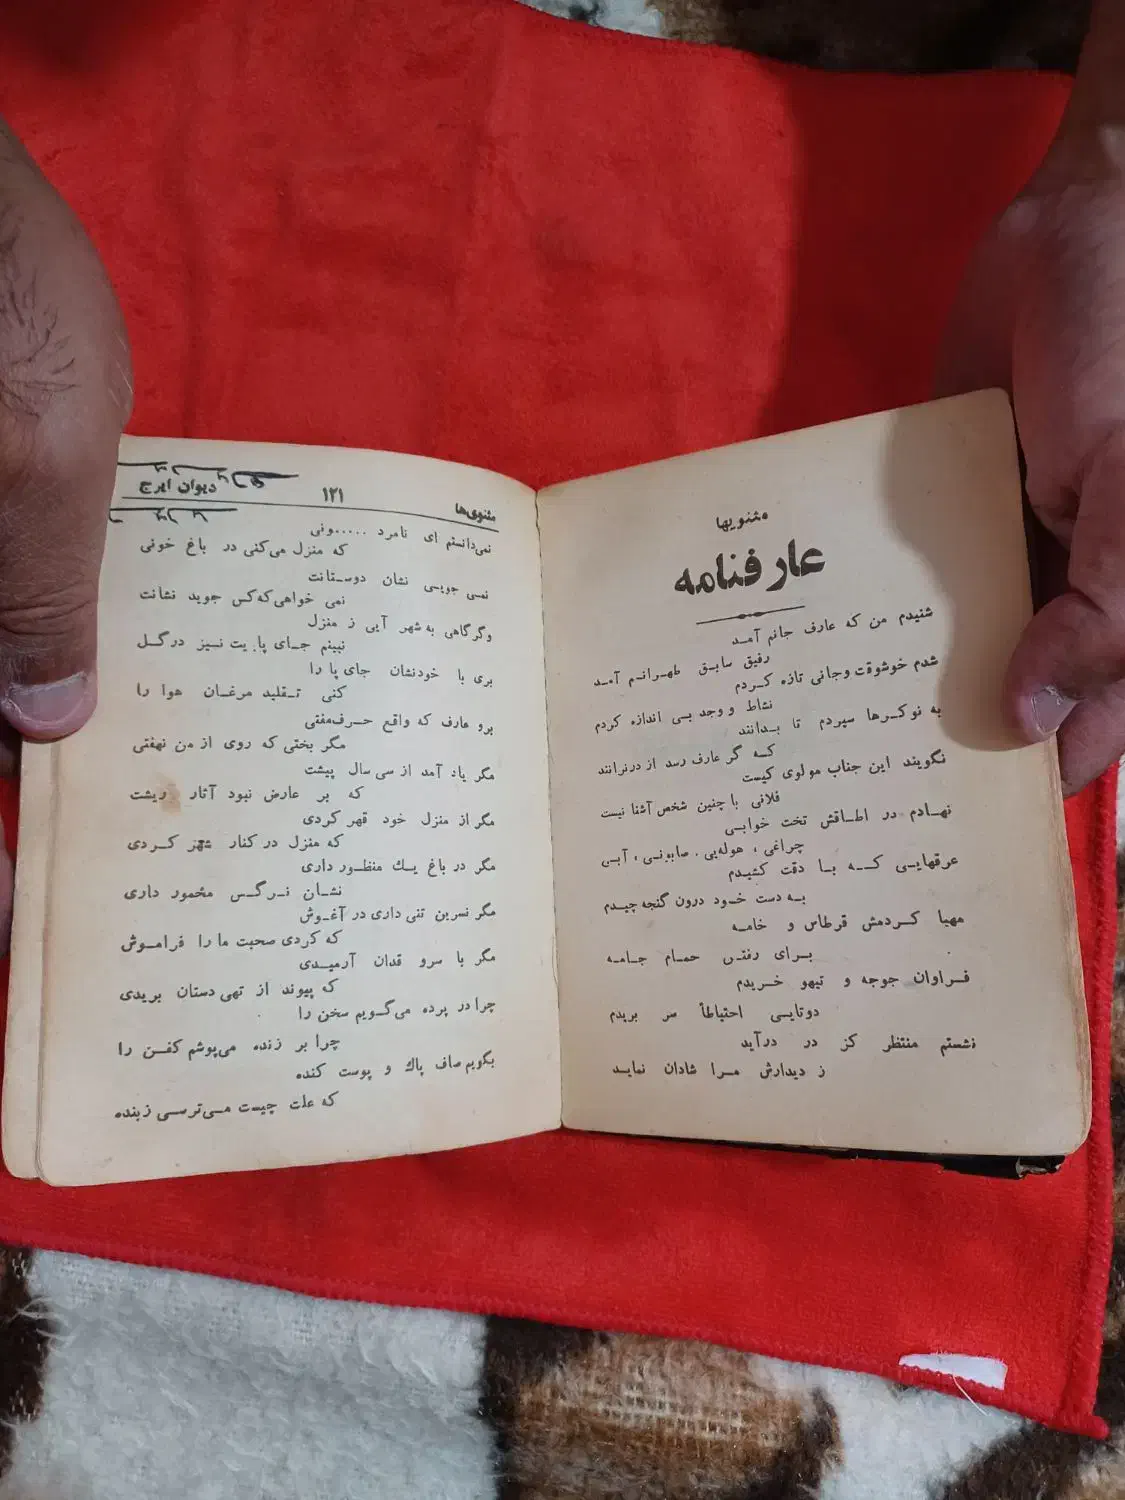 مثنویها
عارفنامه
شنیدم من که عارف جانم آمد
رفیق سابق طهرانم آمد
شدم خوشوقت وجانی تازه کردم
نشاط و وجد بی اندازه کردم
به نوکرها سپردم تا بدانند
که گر عارف رسد از درنرانند
نگویند این جناب مولوی کیست
فلانی با چنین شخص آشنا نیست
نهادم در اطاقش تخت خوابی
چراغی ، هوله‌یی . صابونی ، آبی
عرقهایی که با دقت کشیدم
به دست خود درون گنجه چیدم
مهیا کردمش قرطاس و خامه
برای رفتن حمام جامه
فراوان جوجه و تیهو خریدم
دوتایی احتیاطاً سر بریدم
نشستم منتظر کز در درآید
ز دیدارش مرا شادان نماید
مثنوی‌ها ۱۲۱ دیوان ایرج
نمی‌دانستم ای نامرد .....ونی
که منزل می‌کنی در باغ خونی
نمی جویی نشان دوستانت
نمی خواهی‌که‌کس جوید نشانت
وگرگاهی به‌شهر آیی ز منزل
نبینم جای پایت نیز درگل
بری با خودنشان جای پا را
کنی تقلید مرغان هوا را
برو عارف که واقع حرف‌مفتی
مگر بختی که روی از من نهفتی
مگر یاد آمد از سی سال پیشت
که بر عارض نبود آثار ریشت
مگر از منزل خود قهر کردی
که منزل در کنار شهر کردی
مگر در باغ یك منظور داری
نشان نرگس مخمور داری
مگر نسرین تنی داری در آغوش
که کردی صحبت ما را فراموش
مگر با سرو قدان آرمیدی
که پیوند از تهی دستان بریدی
چرا در پرده می‌گویم سخن را
چرا بر زنده می‌پوشم کفن را
بگویم صاف پاك و پوست کنده
که علت چیست می‌ترسی زبنده